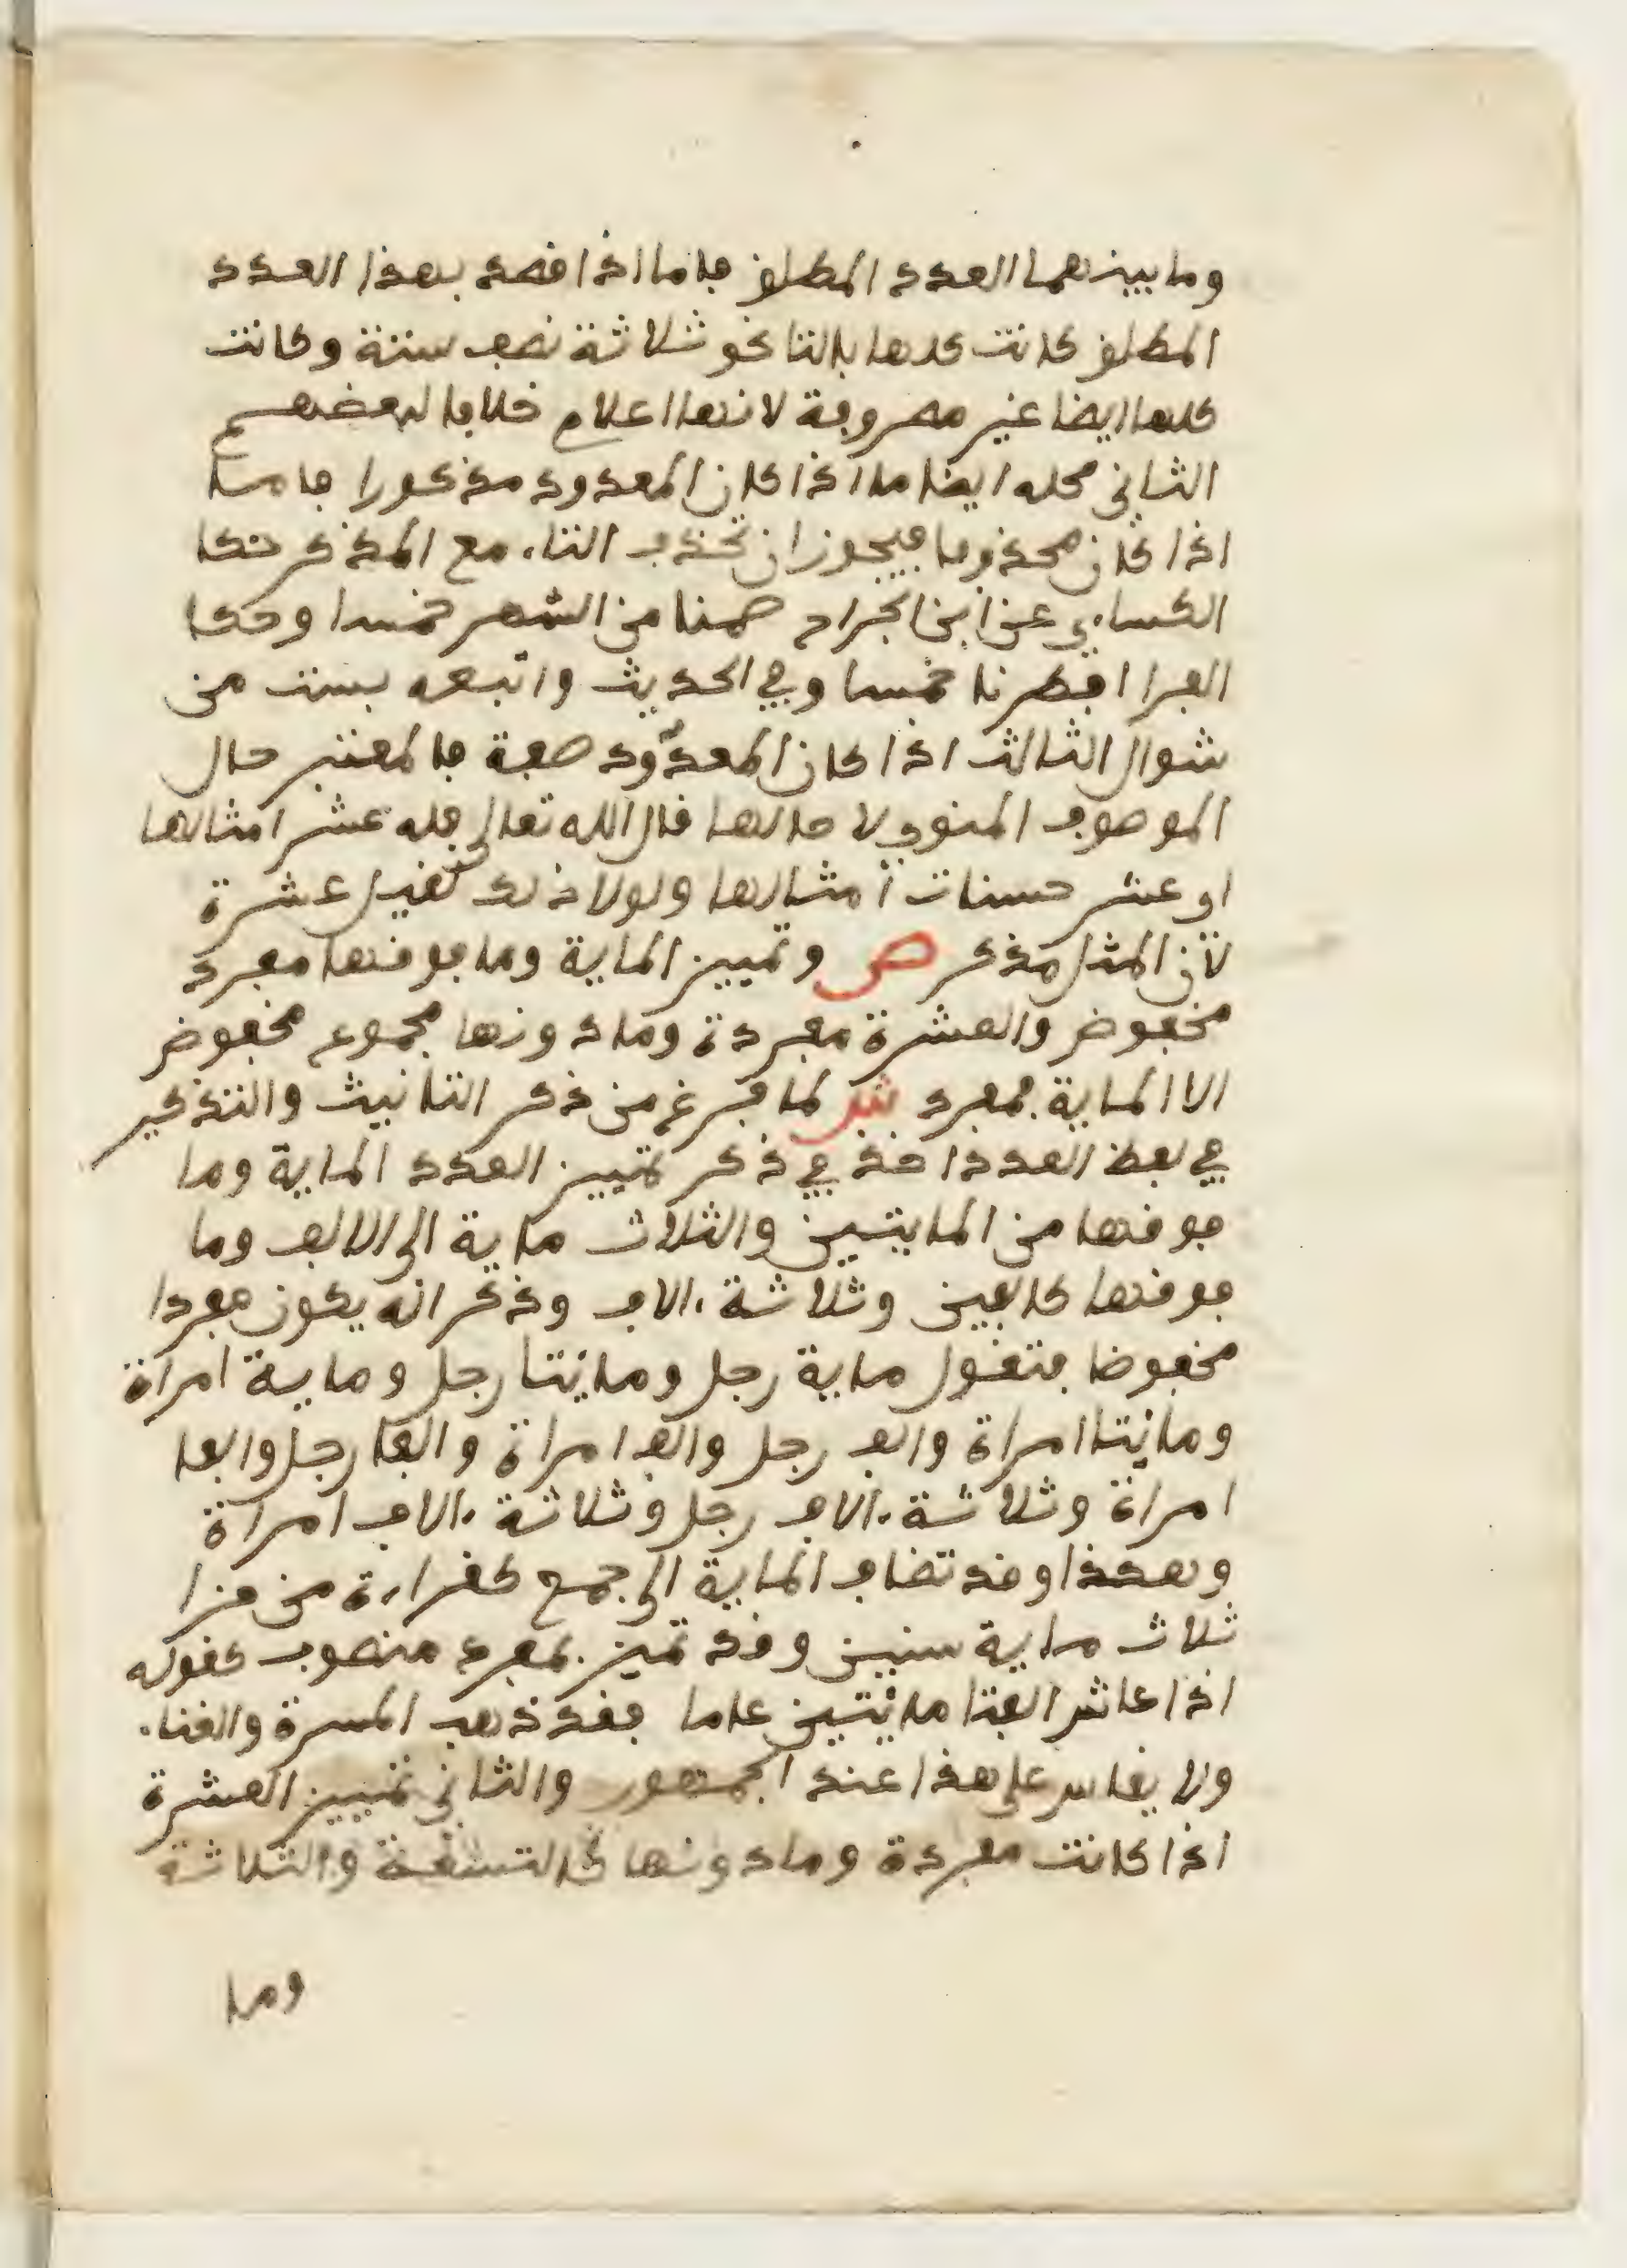 وما بينهما العدد المطلق فاما اذا قصد بهذا العدد
المطلق كانت كلها بالتا نحو ثلاثة نصف ستة وكانت
كلها ايضا غير مصروفة لانها اعلام خلافا لبعضهم
الثاني محله ايضا ما اذا كان المعدود مذكورا فاما
اذا كان محذوفا فيجوز ان تحذف التاء مع المذكر حكا
الكساءي عن ابن الجراح صمنا من الشهر خمسا وحكا
الفرا افطرنا خمسا وفي الحديث واتبعه بست من
شوال الثالث اذا كان المعدود صفة فالمعتبر حال
الموصوف المنوي لا حالها قال الله تعالى فله عشر امثالها
اي عشر حسنات أمثالها ولولا ذلك لقيل عشرة
لأن المثل مذكر ص وتمييز الماية وما فوقها مفرد
مخفوض والعشرة مفردة وما دونها مجموع مخفوض
الا الماية فمفرد ش لما فرغ من ذكر التانيث والتذكير
في بعض العدد اخذ في ذكر تمييز العدد الماية وما
فوقها من المايتين والثلاث ماية الى الالف وما
فوقها كالفين وثلاثة ءالاف وذكر انه يكون مفردا
مخفوضا فتقول ماية رجل ومائتا رجل وماية امراة
ومائتا امراة والف رجل والف امراة والفا رجل والفا
امراة وثلاثة ءالاف رجل وثلاثة ءالاف امراة
وهكذا وقد تضاف الماية الى جمع كقراءة من قرا
ثلاث ماية سنين وقد تميز بمفرد منصوب كقوله
اذا عاش الفتا مائتين عاما فقد ذهب المسرة والفتاء
ولا يقاس على هذا عند الجمهور والثاني تمييز العشرة
اذا كانت مفردة وما دونها كالتسعة والثلاثة
وما